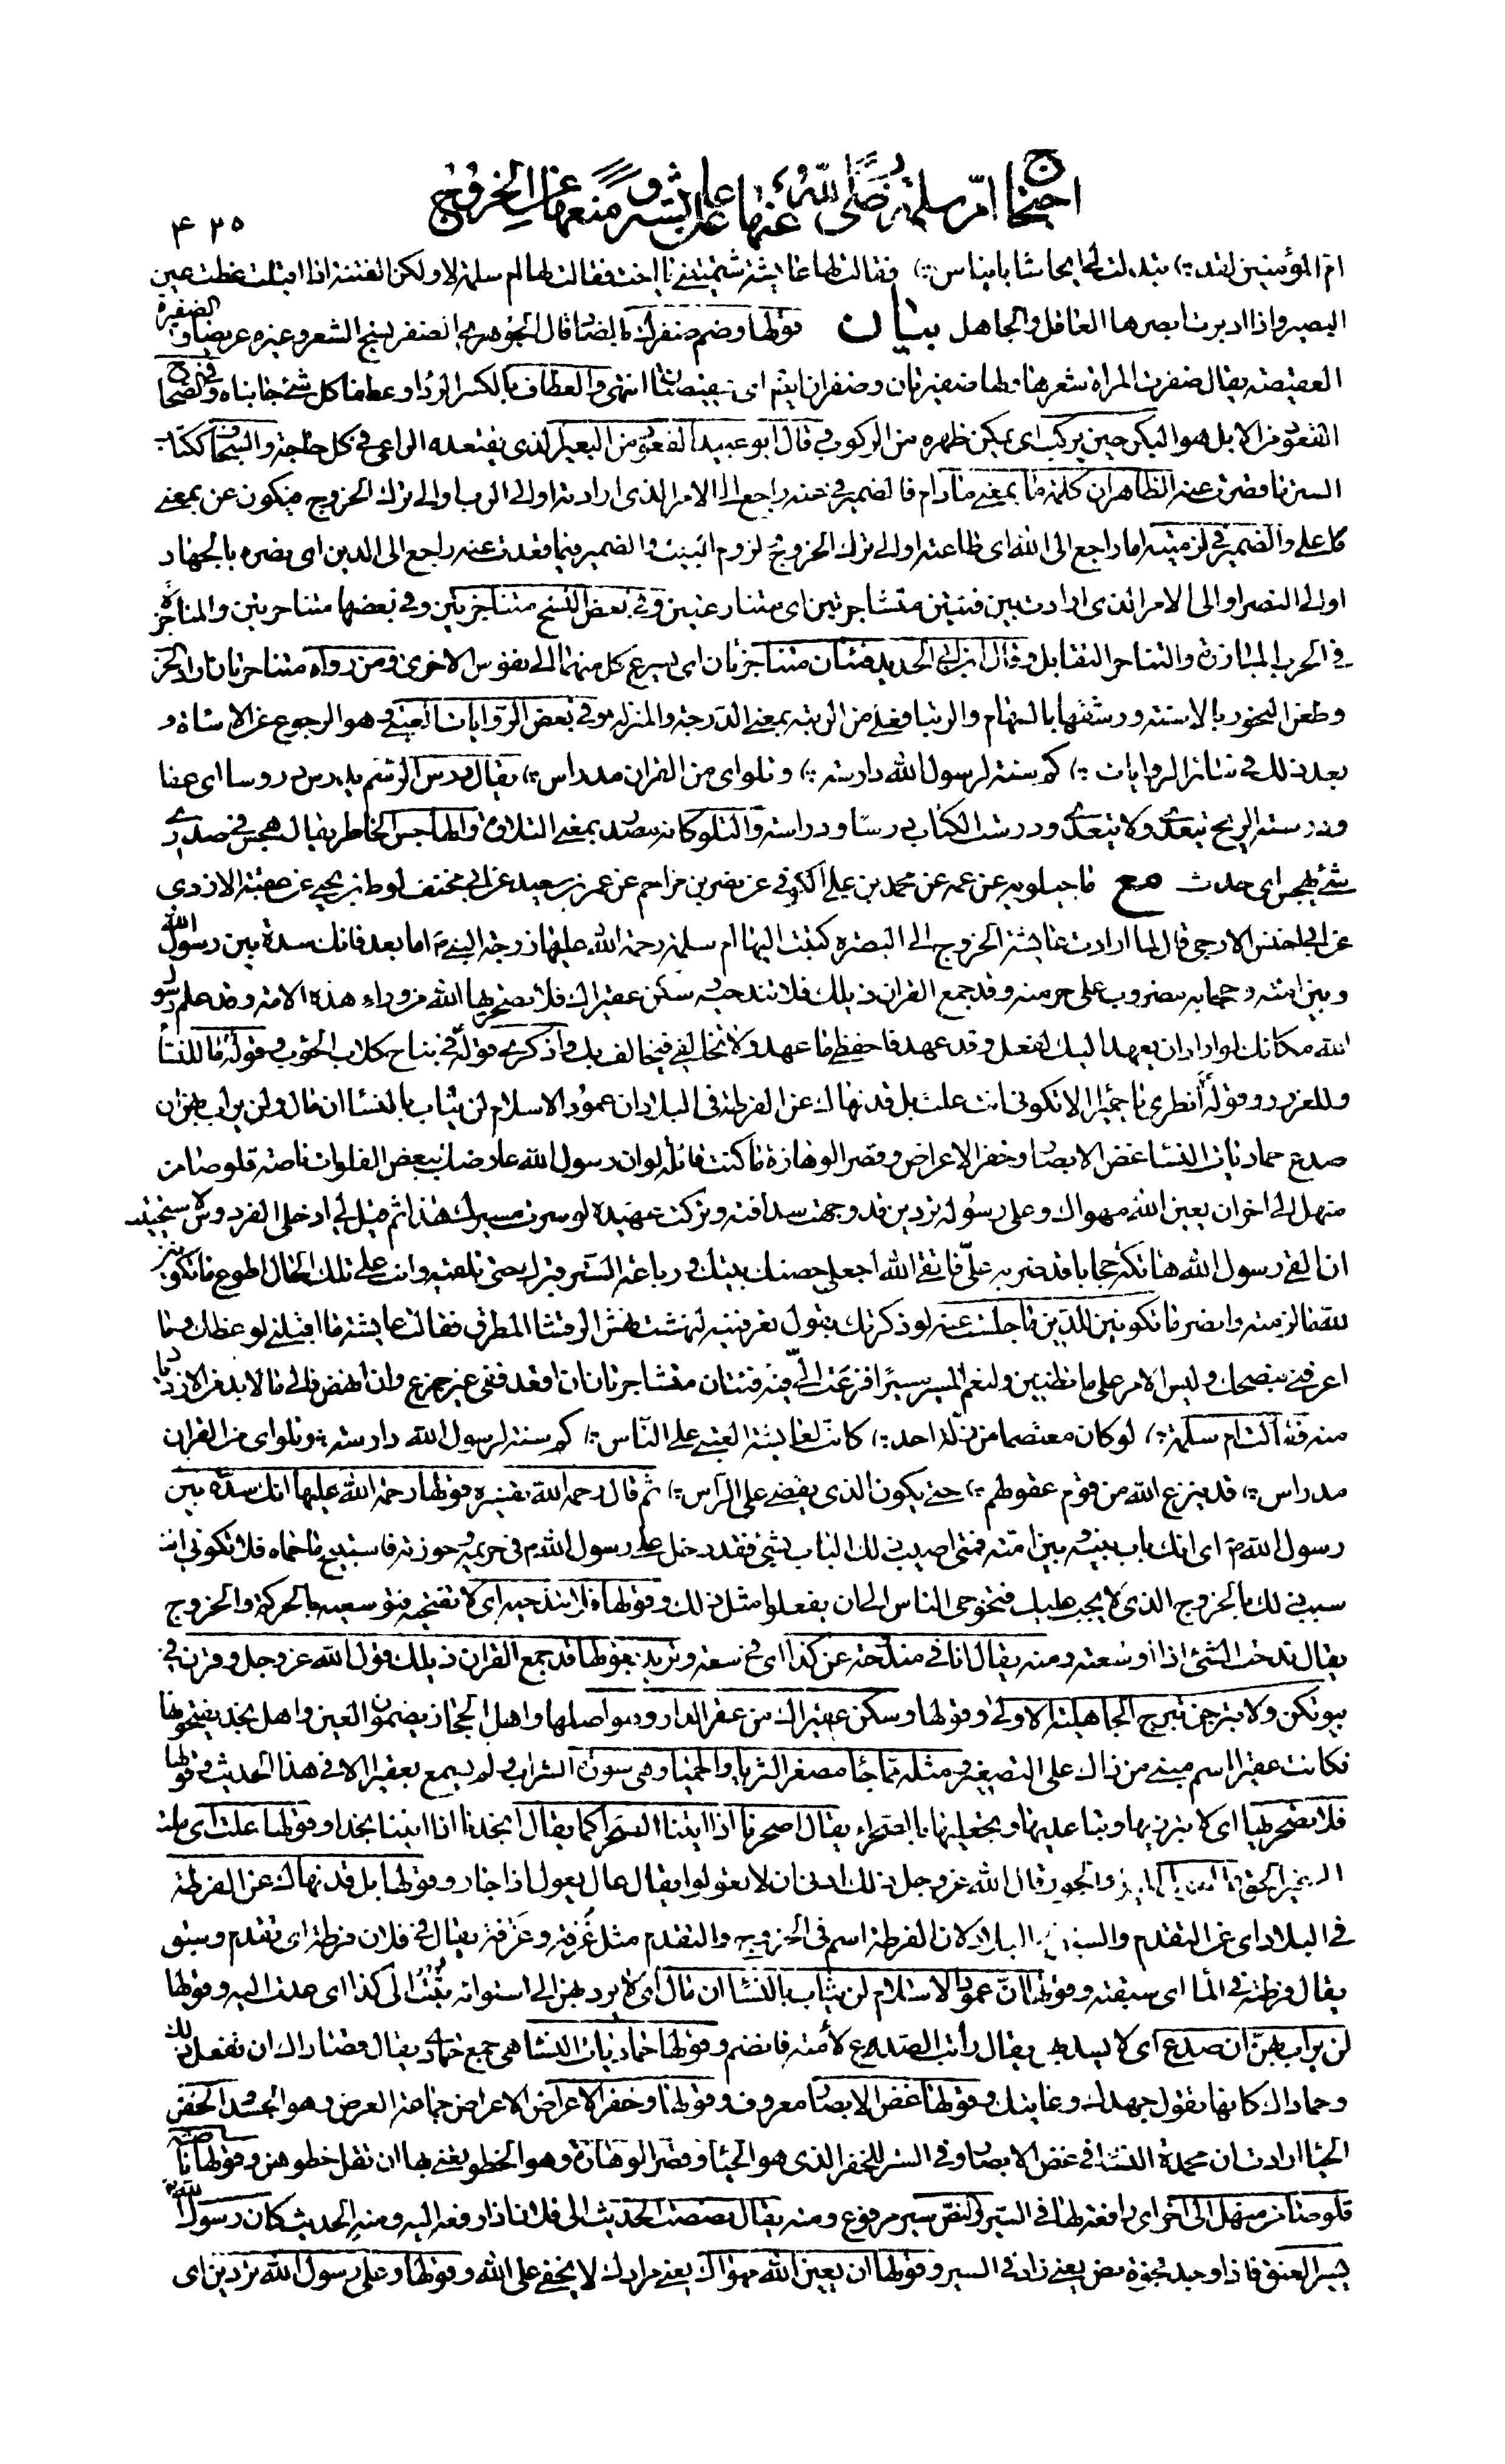 احتجاج امّ سلمة رضى الله عنها على عايشة و منعها عن الخروج
٤٣٥
ام المؤمنين لقد ∴ بتد لت لى ايحاشا بايناس ∴ فقالت لها عايشة شتمتينى يا اخت فقالت لها ام سلمة لا ولكن الفتنة اذا اقبلت غطت عين
البصير واذا ادبرت ابصرها العاقل والجاهل بيان قولها وضم ضفرك بالضاد قال الجوهرى الضفر نسج الشعر وغيره عريضا و الضفيرة
العقيصة يقال ضفرت المراة شعرها ولها ضفيرتان وضفران ايضا اى عقيصتان انتهى والعطاف بالكسر الرداء وعطفا كل شئ جانباه وفى الصحاح
القعود من الابل هو البكر حين يركب اى يمكن ظهره من الركوب قال ابو عبيد القعود من البعير الذى يقتعده الراعى فى كل حاجة والسجاف ككتاب
الستر ما قصرت عنه الظاهر ان كلمة ما بمعنى ما دام فالضمير فى عنه راجع الى الامر الذى ارادته اولى الرب او الى ترك الخروج فيكون عن بمعنى
على والضمير فى لزمتيه اما راجع الى الله اى طاعته او الى ترك الخروج و لزوم البيت والضمير فيما قعدت عنه راجع الى الدين اى نصره بالجهاد
او الى النصر او الى الامر الذى ارادت بين فئتين متشاجرتين اى متنازعتين وفى بعض النسخ متناجزتين وفى بعضها متناحرتين والمناجزة
فى الحرب المبارزة والتناحر التقابل وقال ابن ابى الحديد فئتان متناجزتان اى يسرع كل منهما الى نفوس الاخرى ومن رواه متناحرتان اراد الحرب
وطعن النحور بالاسنة ورشقها بالسهام والرتبا فعلى من الرتبة بمعنى الدرجة والمنزلة وفى بعض الروايات العتبى هو الرجوع عن الاساءة و
بعد ذلك فى سائر الروايات ∴ كم سنة لرسول الله دارسة ∴ وتلو اى من القران مدراس ∴ يقال درس الرسم يدرس دروسا اى عفا
ودرسته الريح يتعدى ولا يتعدى ودرست الكتاب درسا ودراسة والتلو كانه مصدر بمعنى التلاوة والهاجس الخاطر يقال هجس فى صدرى
شئ يهجس اى حدث مع ماجيلويه عن عمه عن محمد بن على الكوفى عن نصر بن مزاحم عن عمر بن سعيد عن ابى مخنف لوط بن يحيى عن عقبة الازدى
عن ابى اخنس الارجى قال لما ارادت عايشة الخروج الى البصرة كتبت اليها ام سلمة رحمة الله عليها زوجة النبى ص اما بعد فانك سدة بين رسول الله
وبين امته وحجابه مضروب على حرمته وقد جمع القران ذيلك فلا تندحيه وسكن عقيراك فلا تصحريها الله من وراء هذه الامة وقد علم رسول
الله مكانك لو اراد ان يعهد اليك لفعل وقد عهد فاحفظى ما عهد ولا تخالفى فيخالف بك واذكرى قوله فى نباح كلاب الحوب وقوله ما للنساء
وللغزو وقوله انظرى يا حميراء الا تكونى انت علت بل قد نهاك عن الفرطة فى البلاد ان عمود الاسلام لن يثاب بالنساء ان مال ولن يراب بهن ان
صدع حماديات النساء غض الابصار وخفر الاعراض وقصر الوهازة ما كنت قائلة لو ان رسول الله عارضك ببعض الفلوات ناصة قلوصا من
منهل الى اخر ان بعين الله مهواك وعلى رسوله تردين قد وجهت سدافته وتركت عهيده لو سرت مسيرك هذا ثم قيل لى ادخلى الفردوس لاستحييت
ان القى رسول الله هاتكة حجابا قد ضربه علىّ فاتقى الله اجعلى حصنك بيتك ورباعة الستر قبرك حتى تلقيه وانت على تلك الحال اطوع ما تكونين
لله ما لزمته وانصر ما تكونين للدين ما جلست عنه لو ذكرتك بقول تعرفينه لنهشت نهش الرقشاء المطرق فقالت عايشة ما اقبلنى لوعظك وما
اعرفنى بنصحك وليس الامر على ما تظنين ولنعم المسير مسيرا فزعت الىّ فيه فئتان متشاجرتان ان اقعد ففى غير حرج وان انهض فالى ما لابد من الازدياد
منه فقالت ام سلمة ∴ لو كان معتصما من زلة احد ∴ كانت لعايشة العتبى على الناس ∴ كم سنة لرسول الله دارسة ∴ وتلو اى من القران
مدراس ∴ قد ينزع الله من قوم عقولهم ∴ حتى يكون الذى يقضى على الراس ∴ ثم قال رحمه الله تفسيره قولها رحمة الله عليها انك سدة بين
رسول الله ص اى انك باب بينه وبين امته فمتى اصيب ذلك الباب بشئ فقد دخل على رسول الله ص فى حريمه وحوزته فاستبيح ما حماه فلا تكونى انت
سبب ذلك بالخروج الذى لا يجب عليك فتحوجى الناس الى ان يفعلوا مثل ذلك وقولها فلا تندحيه اى لا تفتحيه فتوسعيه بالحركة والخروج
يقال ندحت الشئ اذا اوسعته ومنه يقال انا فى مندوحة عن كذا اى فى سعة وتريد بقولها قد جمع القران ذيلك قول الله عز وجل وقرن فى
بيوتكن ولا تبرجن تبرج الجاهلية الاولى وقولها وسكن عقيراك من عقر الدار وهو اصلها واهل الحجاز يضمون العين واهل نجد يفتحونها
فكانت عقيرا اسم مبنى من ذاك على التصغير ومثله مما جاء مصغرا الثريا والحميا وهى سورة الشراب ولم يسمع بعقيرا الا فى هذا الحديث وقولها
فلا تصحريها اى لا تبرزيها وتباعديها وتجعليها بالصحراء يقال اصحرنا اذا اتينا الصحراء كما يقال انجدنا اذا اتينا نجدا وقولها علت اى ملت
الى غير الحق والجور قال الله عز وجل ذلك ادنى ان لا تعولوا يقال عال يعول اذا جار وقولها بل قد نهاك عن الفرطة
فى البلاد اى عن التقدم والسبق فى البلاد لان الفرطة اسم فى الخروج والتقدم مثل غُرفة وغَرفة يقال فى فلان فرطة اى تقدم وسبق
يقال فرطته فى الماء اى سبقته وقولها ان عمود الاسلام لن يثاب بالنساء ان مال اى لا يرد بهن الى استوائه ثبت الى كذا اى عدت اليه وقولها
لن يراب بهن ان صدع اى لا يسد بهن يقال رأبت الصدع لأمته فانضم وقولها حماديات النساء هى جمع حمادى يقال قصاراك ان تفعل ذلك
وحماداك كانها تقول جهدك وغايتك وقولها غض الابصار معروف وقولها وخفر الاعراض الاعراض جماعة العرض وهو الجسد والخفر
الحياء ارادت ان محمدة النساء فى غض الابصار وفى الستر للخفر الذى هو الحياء وقصر الوهازة وهو الخطو يعنى بها ان تقل خطوهن وقولها ناصة
قلوصا من منهل الى اخر اى رافعة لها فى السير والنص سير مرفوع ومنه يقال نصصت الحديث الى فلان اذا رفعه اليه ومنه الحديث كان رسول الله ص
يسير العنق فاذا وجد فجوة نص يعنى زاد فى السير وقولها ان بعين الله مهواك يعنى مرادك لا يخفى على الله وقولها وعلى رسول الله تردين اى